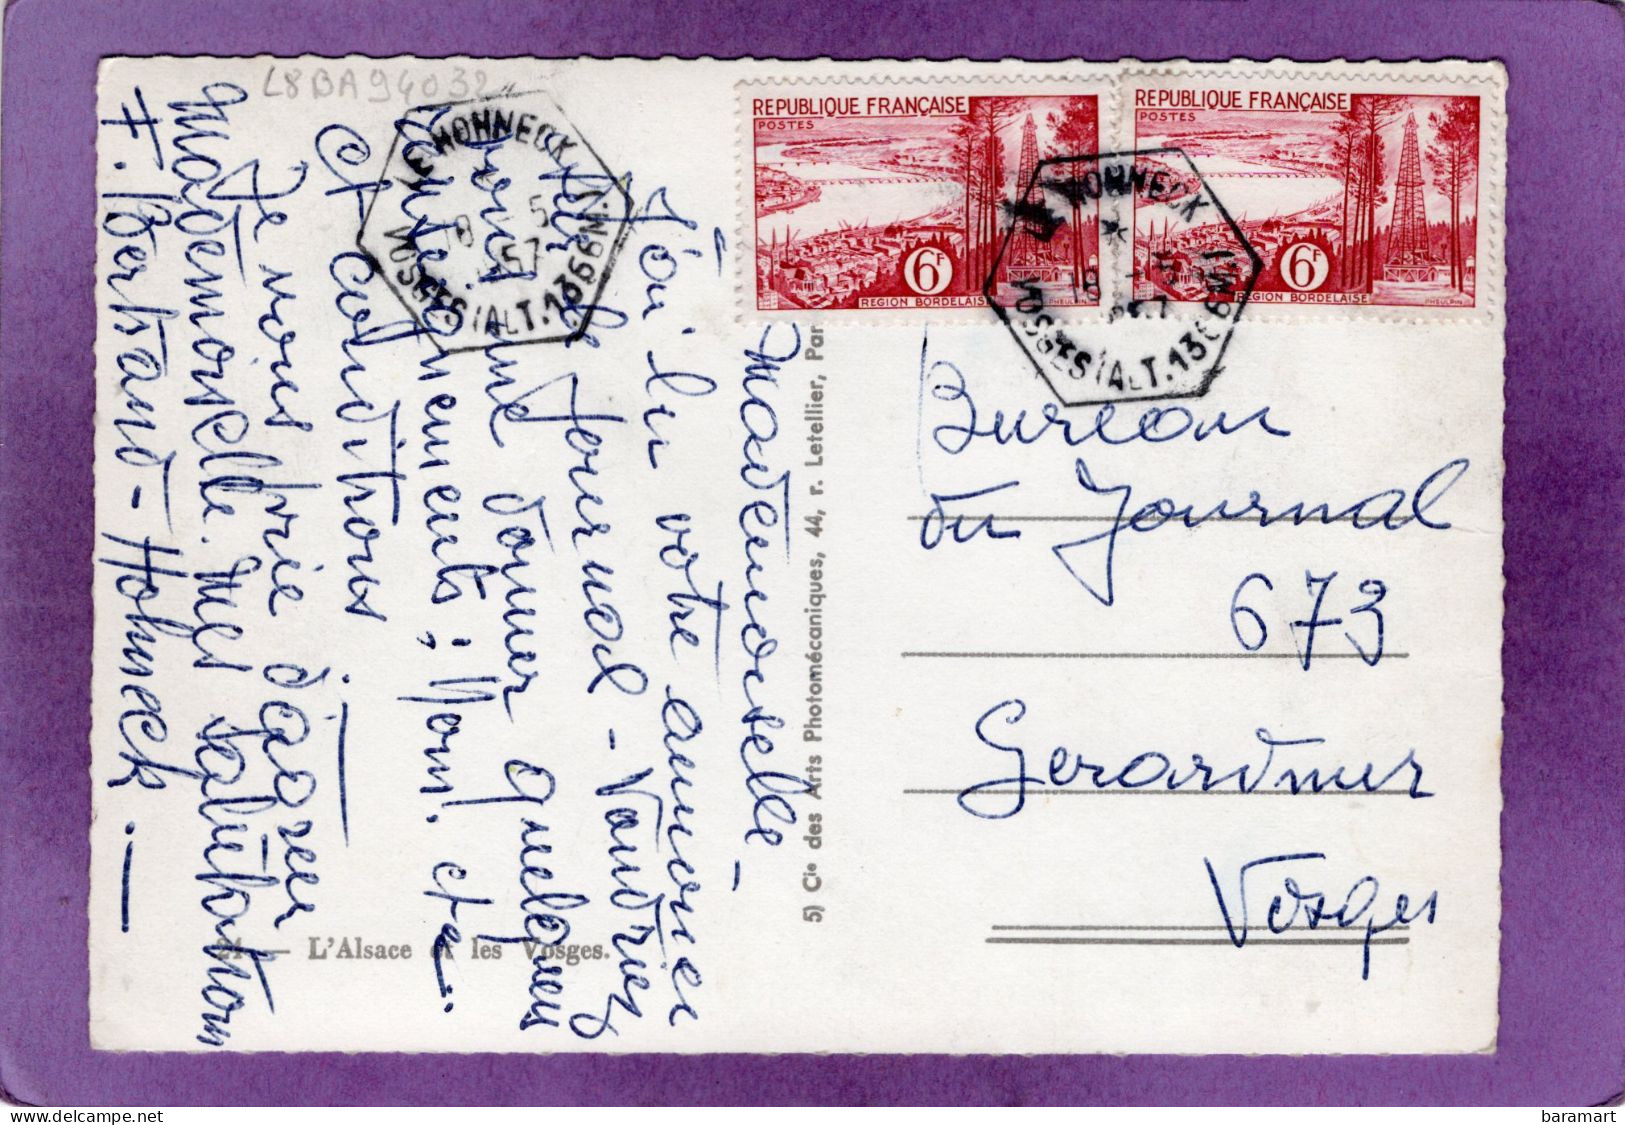 L8BA94032
Mademoiselle -
J'ai lu votre annonce
sur le Journal - Voudriez
vous me donner quelques
renseignements ; Nom! etc..
et conditions
Je vous prie d'agréer
Mademoiselle. Mes salutations
F. Bertrand - Hohneck. —
21 — L'Alsace et les Vosges.
5) Cie des Arts Photomécaniques, 44, r. Letellier, Par
REPUBLIQUE FRANÇAISE
POSTES
6F
REGION BORDELAISE
REPUBLIQUE FRANÇAISE
POSTES
6F
REGION BORDELAISE
PHEULPIN
LE HOHNECK
18 - 5
57
VOSGES (ALT. 1366M.)
LE HOHNECK
18 - 5
VOSGES (ALT. 1366M.)
Bureau
du Journal
673
Gerardmer
Vosges
baramart